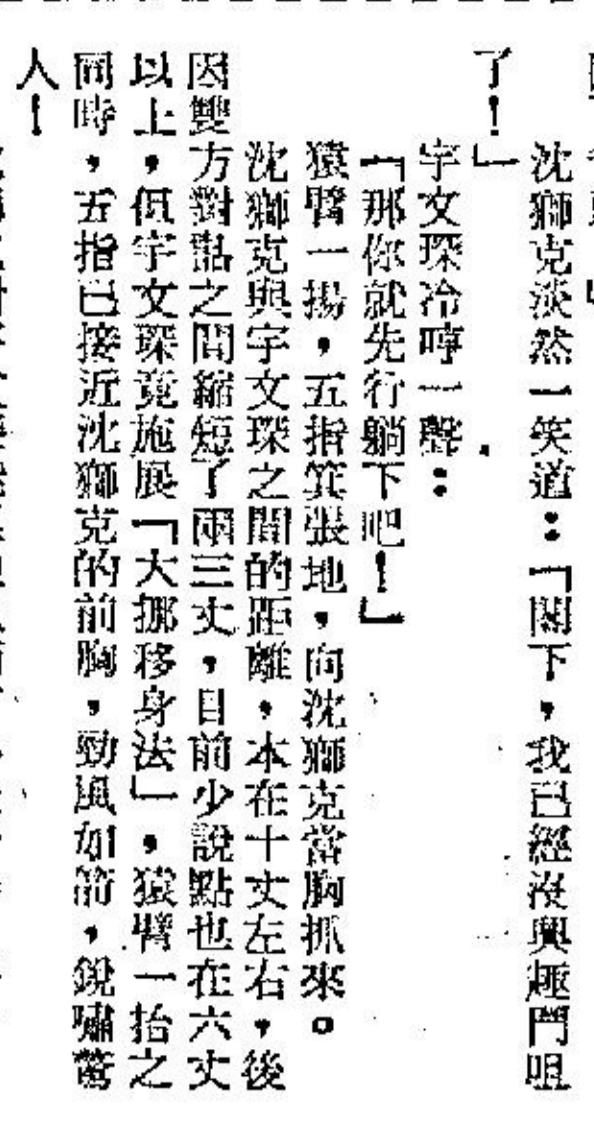 沈獅克淡然一笑道：「閣下，我已經沒興趣鬥咀
了！」
宇文琛冷哼一聲：
「那你就先行躺下吧！」
猿臂一揚，五指箕張地，向沈獅克當胸抓來。
沈獅克與宇文琛之間的距離，本在十丈左右，後
因雙方對話之間縮短了兩三丈，目前少說點也在六丈
以上，但宇文琛竟施展「大挪移身法」，猿臂一抬之
同時，五指已接近沈獅克的前胸，勁風如箭，銳嘯驚
人！